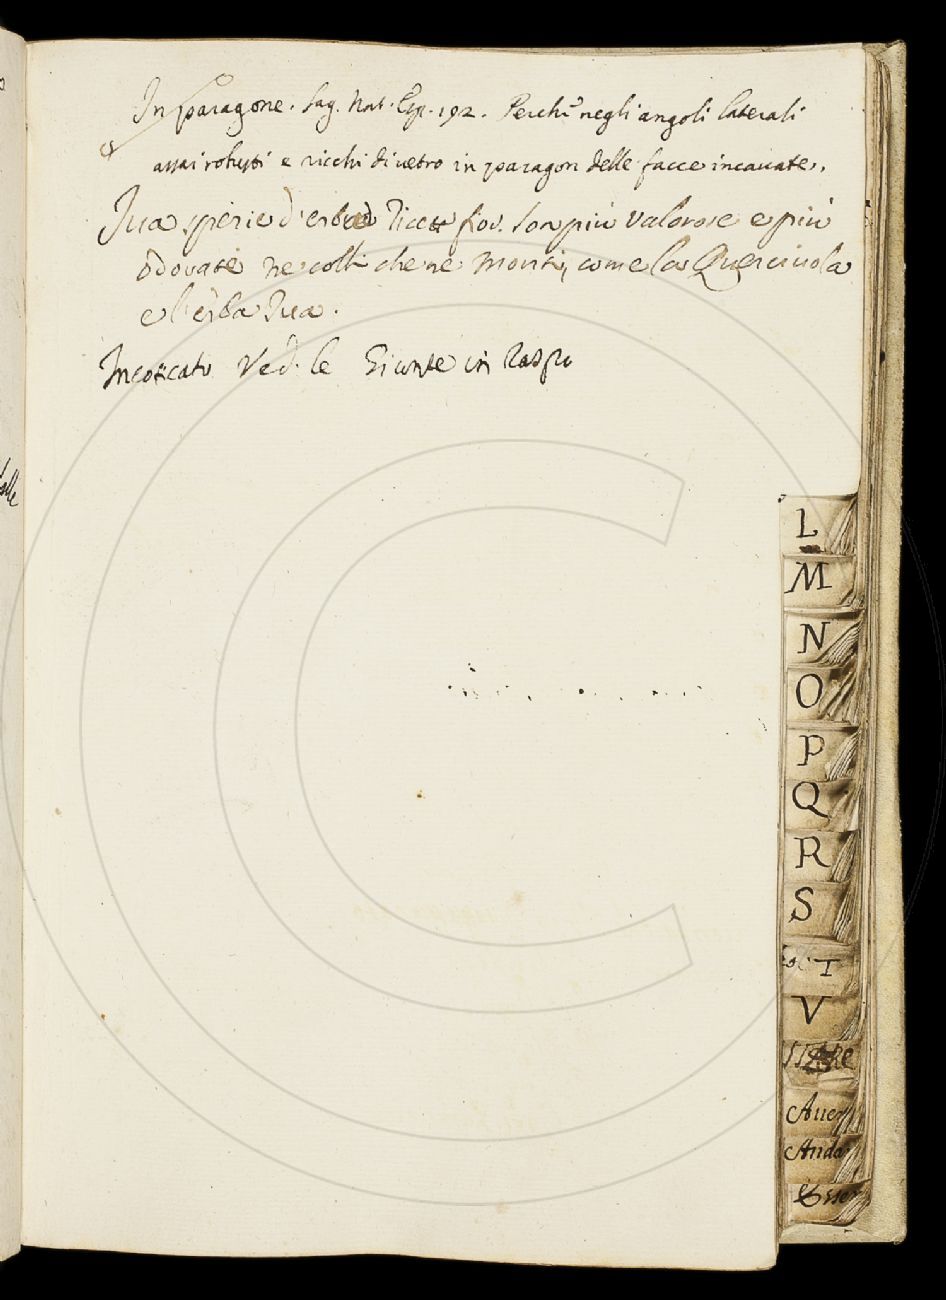 In paragone. Sag. Nat. Esp. 192. Perchè negli angoli laterali
assai robusti e ricchi di vetro in paragon delle facce incavate.
Iva spezie d'erba Ricett fior. son più valorose e più
odorate ne colli che ne monti, come la Quercivola
e l'erba Iva.
Incoticato Ved. le Giunte in
L
M
N
O
P
Q
R
S
T
V
Aver
Anda
Esse